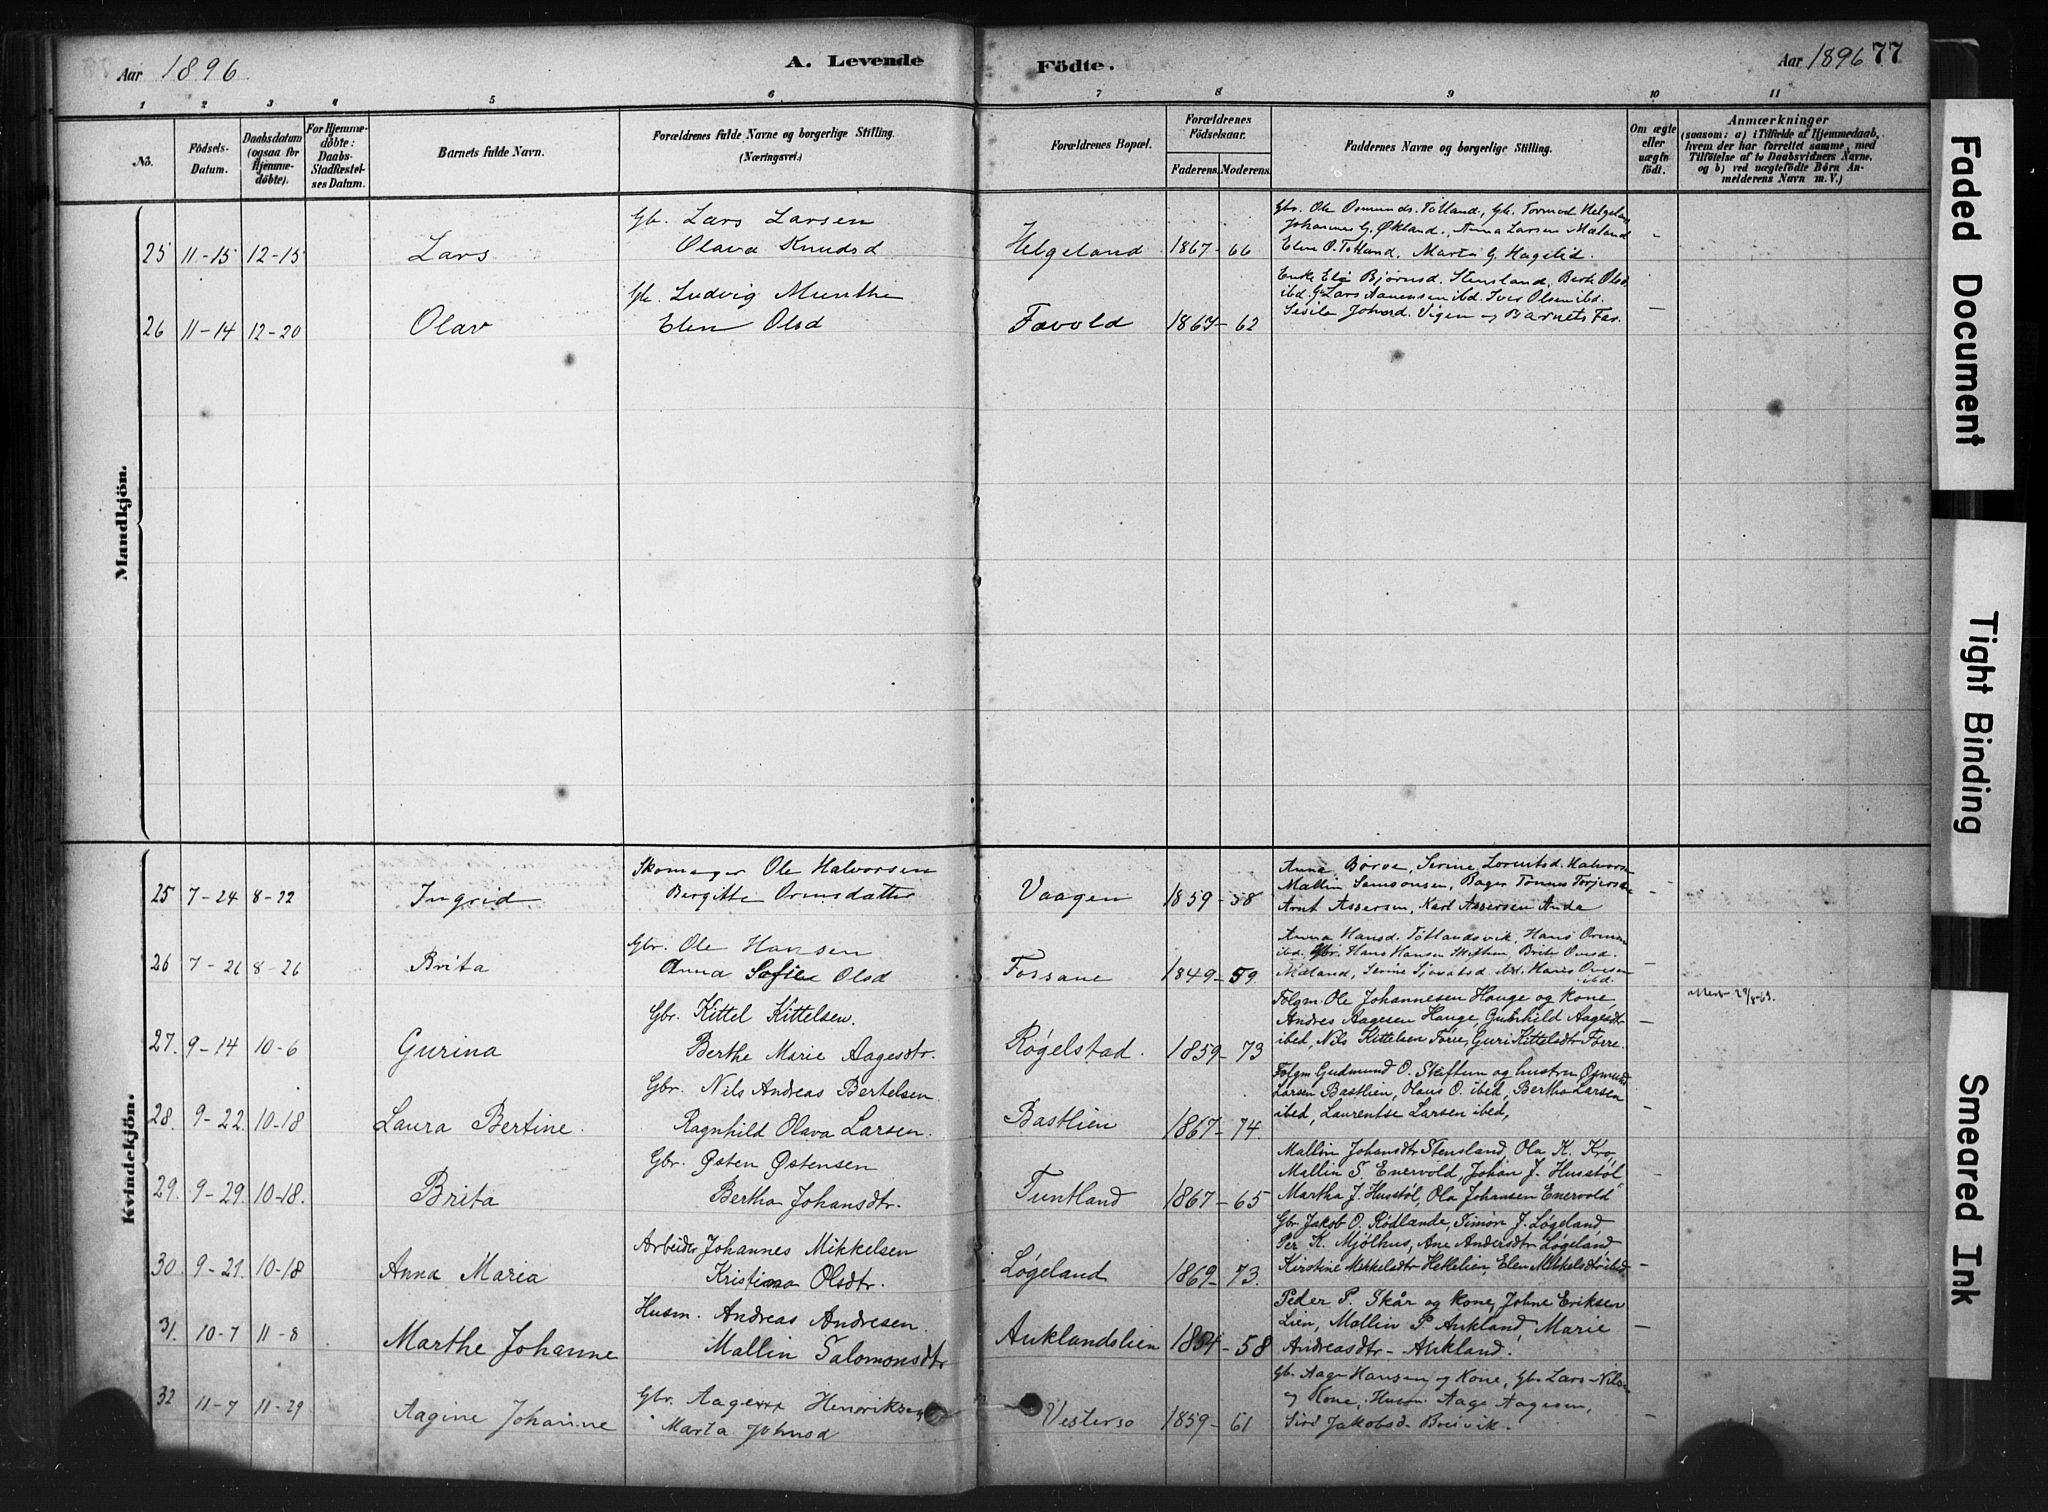 Aar 1896
A. Levende
Födte.
Aar 1896 77
1 2 3 4 5 6 7 8 9 10 11
No.
Födsels-
Datum.
Daabsdatum
(ogsaa for
Hjemme-
döbte).
For Hjemme-
döbte:
Daabs-
Stadfæstel-
ses Datum.
Barnets fulde Navn.
Forældrenes fulde Navne og borgerlige Stilling.
(Næringsvei.)
Forældrenes Bopæl.
Forældrenes
Födselsaar.
Faderens. Moderens.
Faddernes Navne og borgerlige Stilling.
Om ægte
eller
uægte
födt.
Anmærkninger
(saasom: a) i Tilfælde af Hjemmedaab,
hvem der har forrettet samme, med
Tilföielse af to Daabsvidners Navne.
og b) ved uægtefödte Börn An-
melderens Navn m. V.)
Mandkjön.
Gb. Lars Larsen
Gbr. Ole Osmunds. Totland, Gb. Tormod Helgeland
Johannes G. Økland, Anna Larsen Mæland
25 11-15 12-15 Lars Olava Knudsd Helgeland 1867-66 Elen O. Totland. Marta G. Hagelid. -
Gb. Ludvig Munthe
Enke Eli Bjørnsd. Stensland, Berte Olsd.
ibd. Lars Aanensen ibd. Iver Olsen ibd.
26 11-14 12-20 Olav Elen Olsd Favold 1867-62 Sesile Johnsd. Vigen og Barnets Far. -
Kvindekjön.
Skomager Ole Halvorsen
Anna Børve, Serine Lorntsd. Halvorsen
25 7-24 8-22 Ingrid Bergitte Ormsdatter Vaagen 1859-58 Mallin Samsonsen, Bager Tønnes Torjersen
Arnt Assersen, Karl Assersen Anda
Gbr. Ole Hansen
Anna Hansd. Totlandsvik, Hans Ormsen
ibd. Gbr. Hans Hansen Skiftun, Brite Ovesd.
26 7-26 8-26 Brita Anna Sofie Olsd Fossane 1849-59 Mæland, Serine ibd. Hans Ovesen -
ibd.
Gbr. Kittel Kittelsen.
Folgm. Ole Johannesen Hauge og Kone,
Andres Aagesen Hauge, Gunhild Aagesdtr
27. 9-14 10-6 Gurina Berthe Marie Aagesdtr. Røgelstad. 1859-73 ibed, Nils Kittelsen Førre, Guri Kittelsdtr Førre. -
Gbr. Nils Andreas Bertelsen
Folgm Gudmund O. Skiftun og hustru, Osmund
Larsen Bastlien, Olaus O. ibed, Bertha Larsen
28. 9-22. 10-18 Laura Bertine. Ragnhild Olava Larsen. Bastlien 1867-74. ibed, Laurentse Larsen ibed, -
Gbr. Østen Østensen
Mallin Johansdtr Stensland, Ola K. Kro,
Mallin T. Enervold, Johan J. Husstøl
29. 9-29. 10-18. Brita Bertha Johansdtr. Tuntland 1867-65 Martha J. Husstøl, Ola Johansen Enervold -
Arbeider Johannes Mikkelsen
Gbr. Jakob O. Rødlande, Simon J. Løgeland
Per K. Mjølhus, Ane Andersdtr Løgeland
30. 9-21. 10-18 Anna Maria Kristiana Olsdtr. Løgeland 1869-73. Kirstine Mikkelsdtr Hetlelien, Elen Mikkelsdtr ibd -
Husm. Andreas Andresen.
Peder P. Skår og Kone, Johne Eriksen
Lien, Mallin P. Aukland, Marie
31. 10-7 11-8 Marthe Johanne Mallin Salomonsdtr Auklandslien 1854-58 Andreasdtr - Aukland. -
Gbr. Aage Henriksen
Gb. Aage Hansen og Kone, Gb. Lars Nilsen
og Kone, Husm. Aage Aagesen,
32 11-7 11-29 Aagine Johanne Marta Johnsd Vestersø 1859-61 Siri Jakobsd. Breivik. -
Faded Document
Tight Binding
Smeared Ink